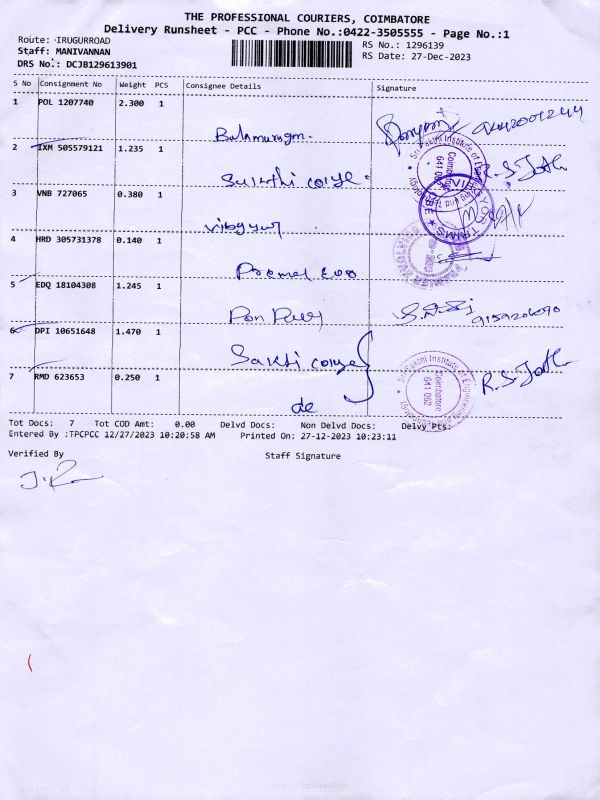 THE PROFESSIONAL COURIERS, COIMBATORE
Delivery Runsheet - PCC - Phone No.:0422-3505555 - Page No.:1
Route: IRUGURROAD
RS No.: 1296139
Staff: MANIVANNAN
RS Date: 27-Dec-2023
DRS No.: DCJB129613901
S No Consignment No Weight PCS Consignee Details Signature
1 POL 1207740 2.300 1
Balamurugan.
2 IXM 505579121 1.235 1
Sakthi colge.
R.S. Jothi
3 VNB 727065 0.380 1
vibgyur
4 HRD 305731378 0.140 1
5 EDQ 18104308 1.245 1
9159206090
6 DPI 10651648 1.470 1
Sakthi colge
R.S. Jothi
Sri Sakthi Institute of Engineering
Coimbatore
641 062
7 RMD 623653 0.250 1
de
Tot Docs: 7 Tot COD Amt: 0.00 Delvd Docs: Non Delvd Docs: Delvy Pts:
Entered By :TPCPCC 12/27/2023 10:20:58 AM Printed On: 27-12-2023 10:23:11
Verified By Staff Signature